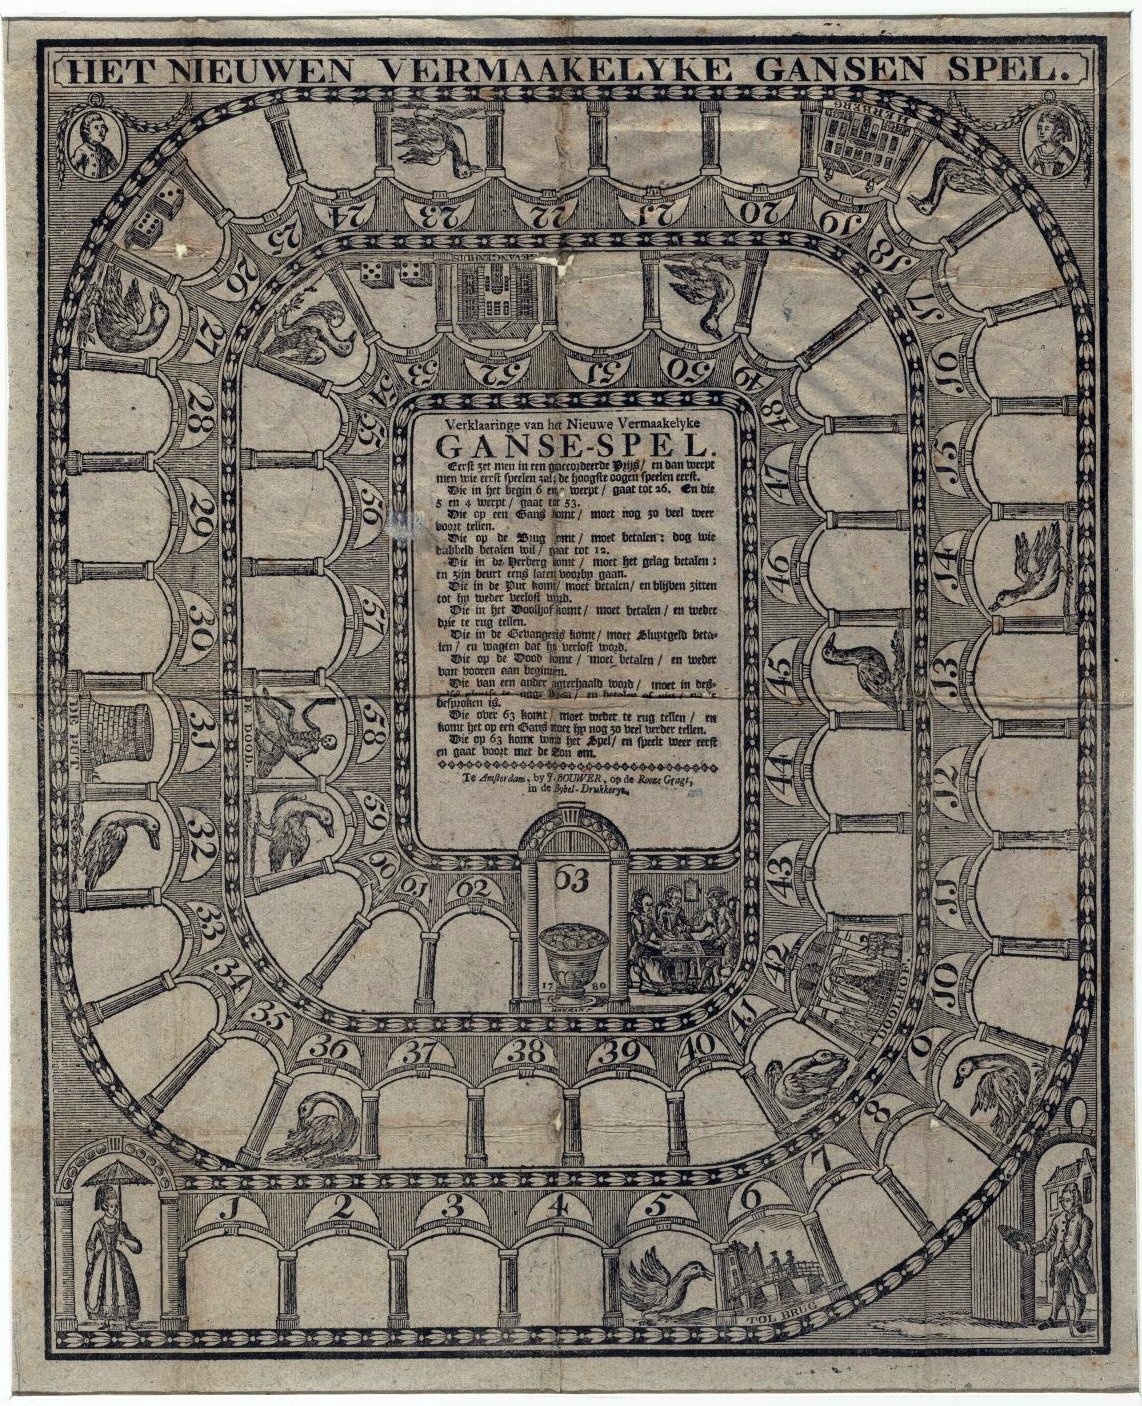 HET NIEUWEN VERMAAKELYKE GANSEN SPEL.
Verklaaringe van het Nieuwe Vermaakelyke
GANSE-SPEL.
Eerst zet men in een geaccordeerde Prijs/ en dan werpt
men wie eerst speelen zal; de hoogste oogen speelen eerst.
Die in het begin 6 en werpt/ gaat tot 26. En die
5 en 4 werpt/ gaat tot 53.
Die op een Gans komt/ moet nog zo veel weer
voort tellen.
Die op de Brug komt/ moet betalen: dog wie
dubbeld betalen wil/ gaat tot 12.
Die in de Herberg komt/ moet het gelag betalen:
en zijn beurt eens laten voorby gaan.
Die in de Put komt/ moet betalen/ en blijven zitten
tot hy weder verlost word.
Die in het Doolhof komt/ moet betalen/ en weder
drie te rug tellen.
Die in de Gevangenis komt/ moet Sluytgeld beta-
len/ en wagten dat hy verlost word.
Die op de Dood komt/ moet betalen/ en weder
van vooren aan beginnen.
Die van een ander agterhaald word/ moet in des-
en betalen
besproken is.
Die over 63 komt/ moet weder te rug tellen/ en
komt het op een Gans moet hy nog zo veel verder tellen.
Die op 63 komt wind het Spel/ en speelt weer eerst
en gaat voort met de Zon om.
Te Amsterdam, by J. BOUWER, op de Rooze Gragt,
in de Bybel-Drukkerye,
1
2
3
4
5
6
TOL BRUG
7
8
9
10
11
12
13
14
15
16
17
18
19
HERBERG
20
21
22
23
24
25
26
27
28
29
30
31
DE PUT
32
33
34
35
36
37
38
39
40
41
42
DOOLHOF.
43
44
45
46
47
48
49
50
51
52
GEVANGENHUIS
53
54
55
56
57
58
DE DOOD.
59
60
61
62
63
17 80